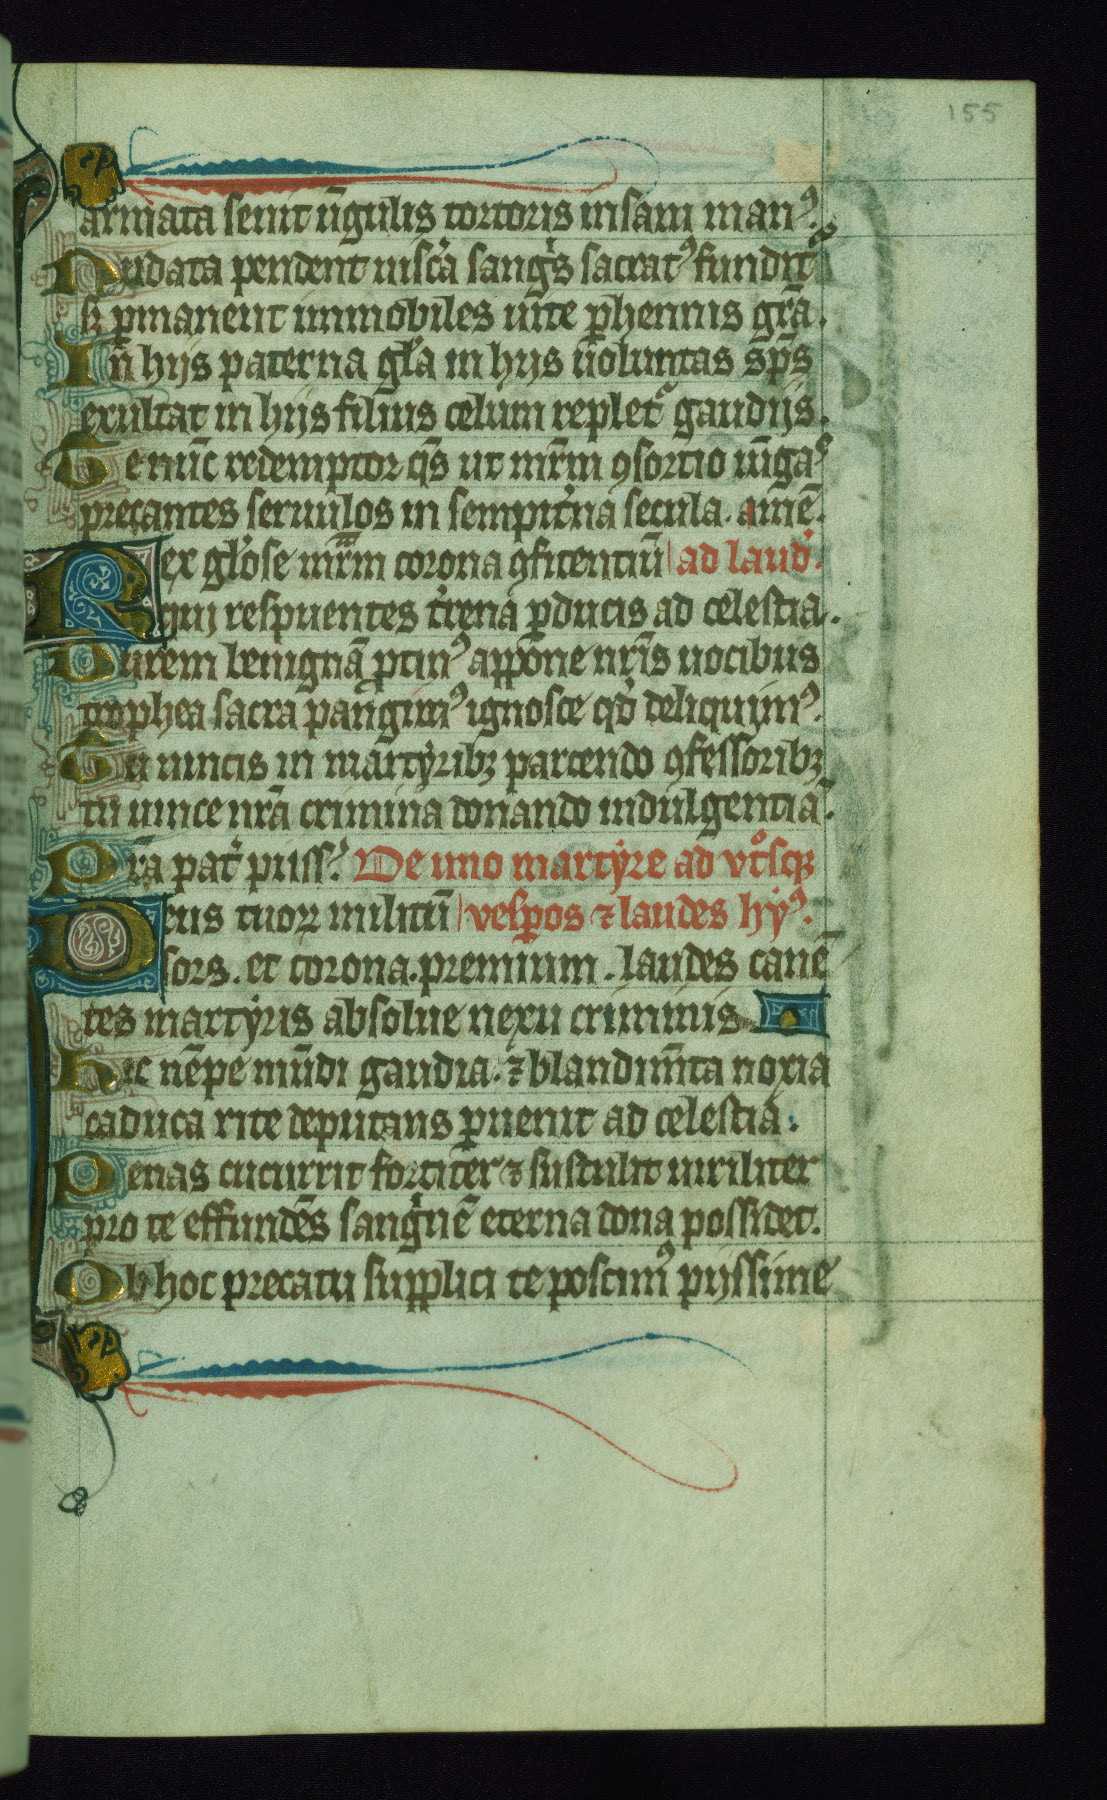 155
armata seuit ūgulis tortoris insani man⁹.
Nudata pendent uiscͣa sangͥs sacrat⁹ fundit᷑
sꝫ ꝑmanent immobiles uite ꝑhennis grā.
In hijs paterna gl̄a in hijs uoluntas sp̄s
exultat in hijs filius celum replet᷑ gaudijs.
Te nūc redemptor q̄s ut mr̄m ꝯsortio iūgas
precantes seruulos in sempit̓na secula. amē.
Rex gl̓ose mr̄m corona ꝯfitentiū ad laud̓.
qui respuentes t̓rena ꝑducis ad celestia.
Aurem benignā ptin⁹ appone nr̄is uocibus
trophea sacra pangim⁹ ignosce qd̓ deliquim⁹.
Tu uincis in martyribꝫ parcendo ꝯfessoribꝫ
tu uince nr̄a crimina donando indulgentiā.
Pr̄a pat̓ pijss̓. De uno martyre ad vt̓sqꝫ
Deus tuoꝝ militū vesꝑos ⁊ laudes hy⁹.
sors. et corona. premium. laudes canē
tes martyris absolue nexu criminis
Hic nēpe mūdi gaudia. ⁊ blandim̄ta noxia
caduca rite deputans ꝑuenit ad celestia.
Penas cucurrit fortiter ⁊ sustulit uiriliter
pro te effundēs sangͥnē eterna dona possidet.
Ob hoc precatu supplici te poscim⁹ pijssime